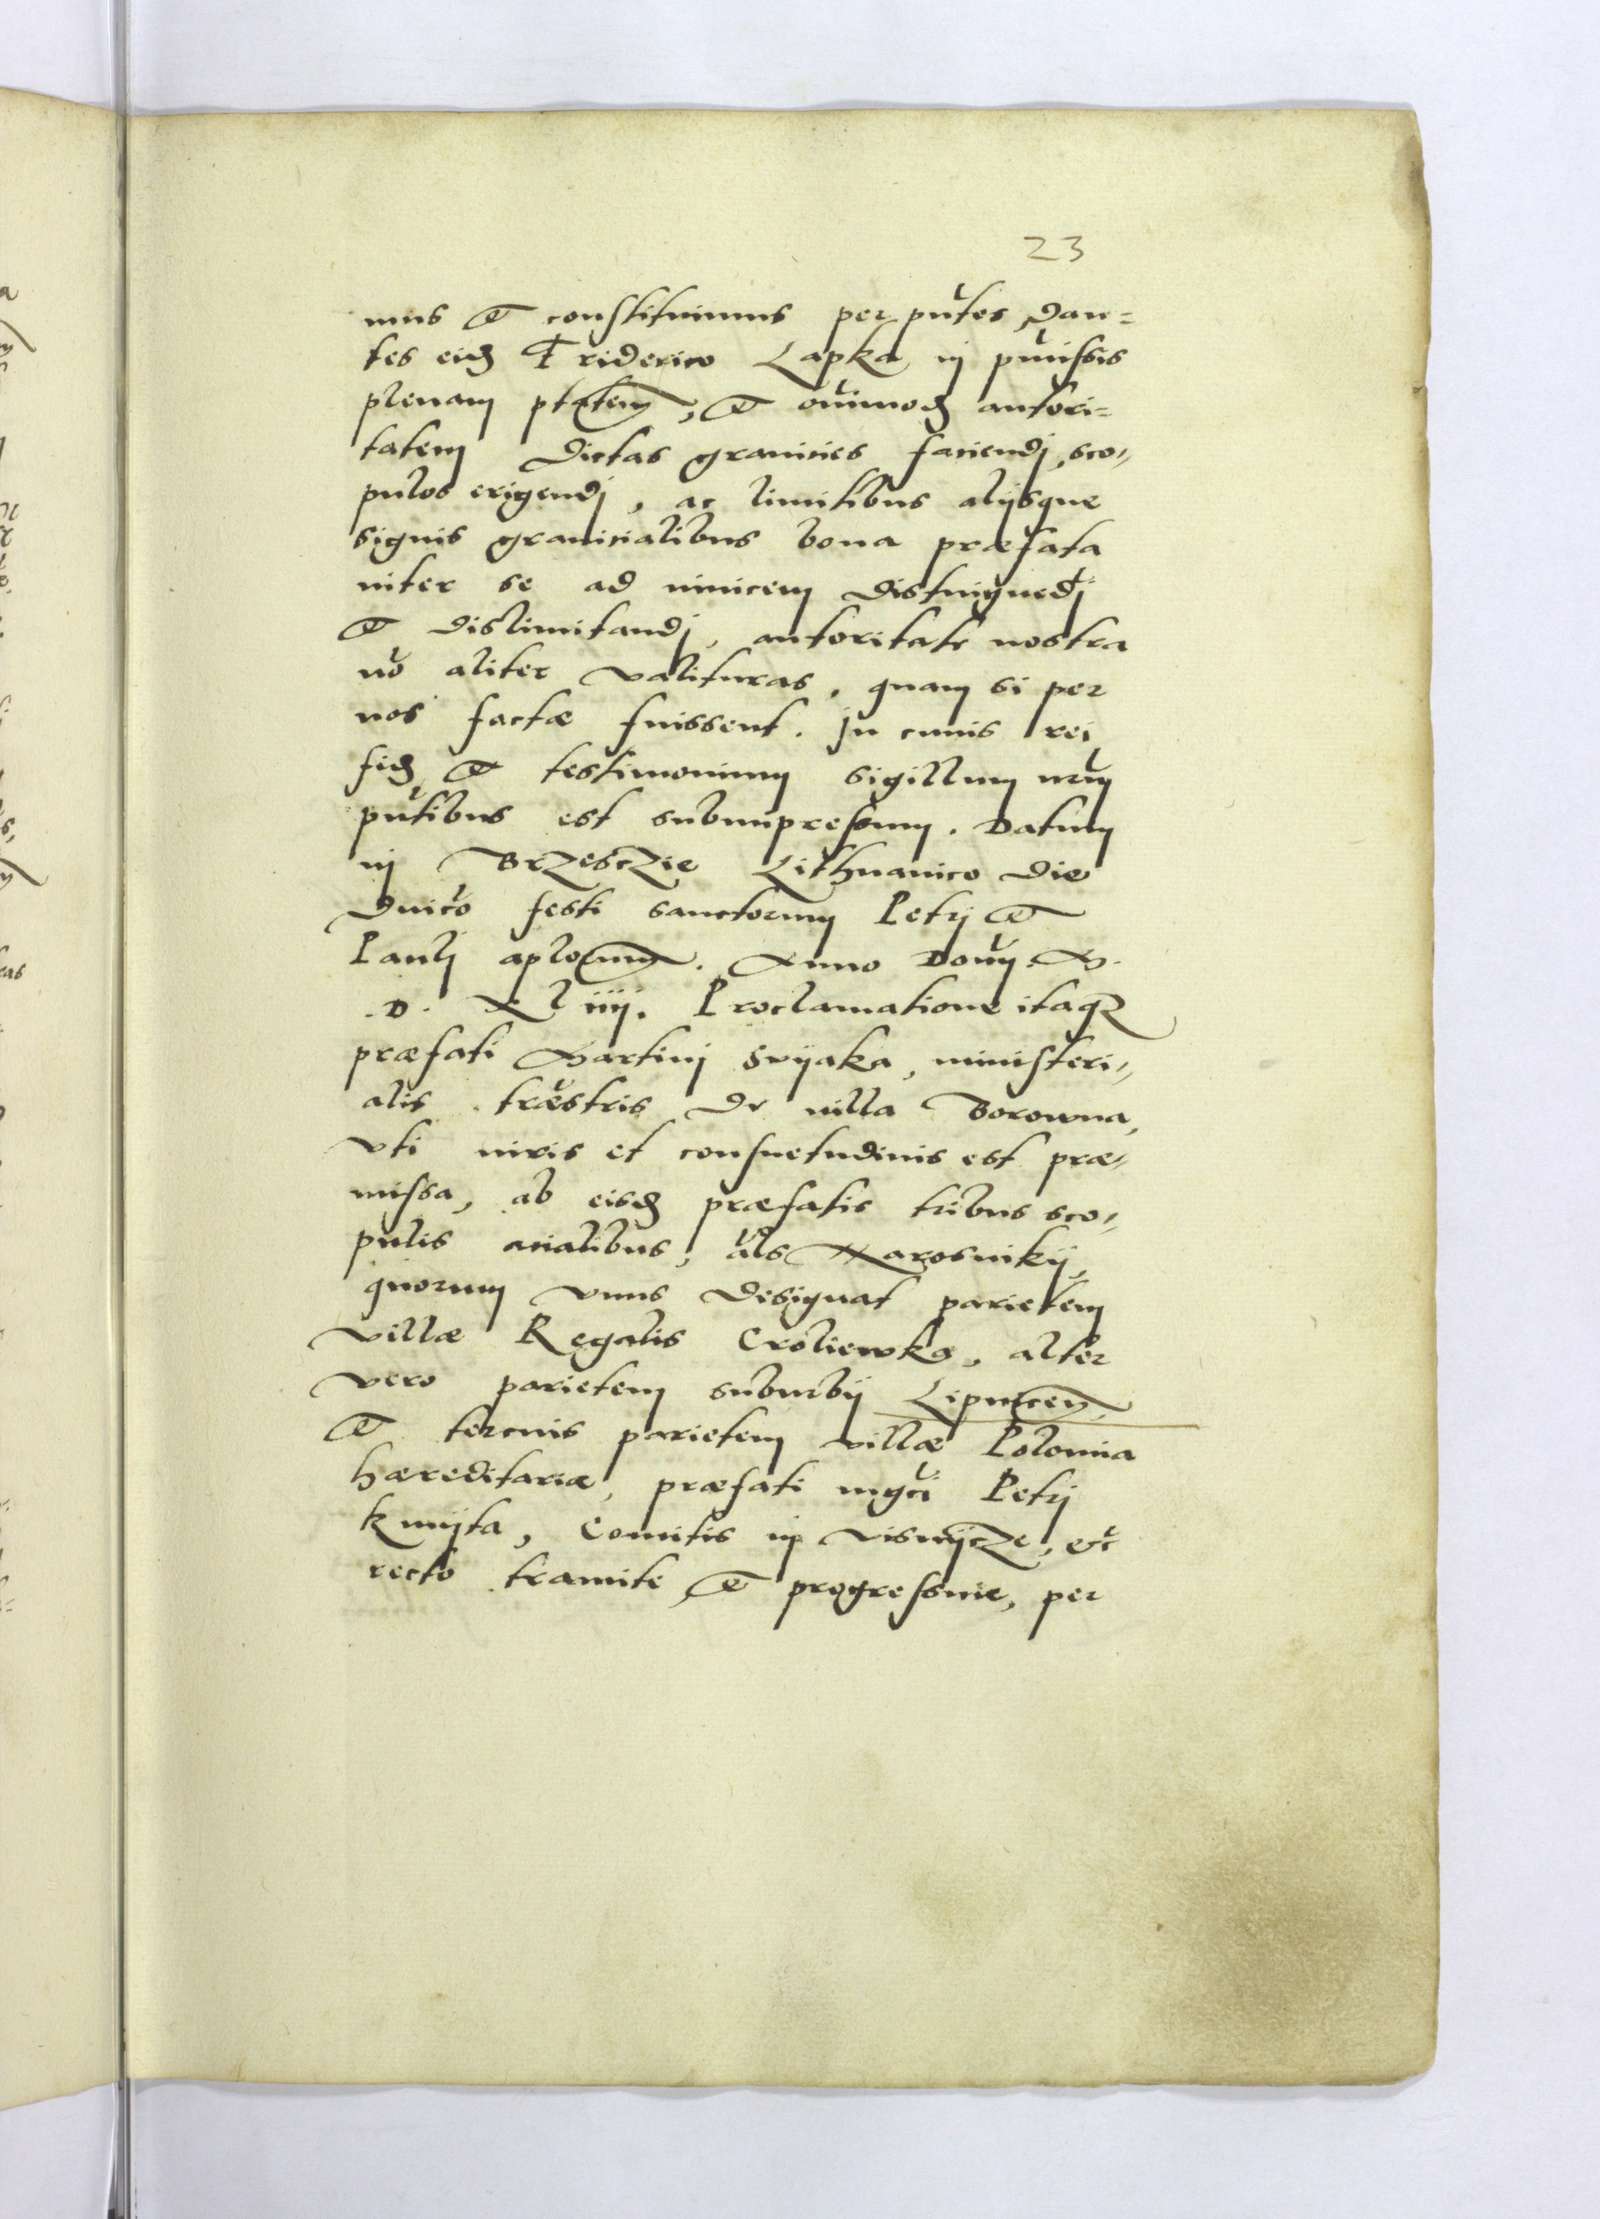 23
mus et constituimus per pntes, Dan=
tes eid Friderico Lapka in pmissis
plenam ptatem, et omimod autori=
tatem dictas granicies faciendj, sco=
pulos erigendj, ac limitibus alijsque
signis granicialibus bona præfata
inter se ad inuicem distinguedj
et dislimitandj, autoritate nostra
no aliter valituras, quam si per
nos factæ fuissent. In cuius rei
fid et testimonium sigillum nrum
pntibus est subimpressum. Datum
in Brzesczie Lithuanico die
dnico festi sanctorum Petrj et
Paulj aplorum. Anno Domj. M.
.D. Xl iiij. Proclamatione itaq
præfati Martinj ministeri=
alis træstris de villa Borowna,
vti iuris et consuetudinis est præ=
missa, ab eisd præfatis tribus sco=
pulis acialibus, als Narosnikij,
quorum vnus designat parietem
villæ Regalis Croliewka, alter
vero parietem suburbij Lipnicen,
et tercius parietem villæ Polomia
hæreditariæ, præfati mgci Petrj
Kmijta, Comitis in Visnijcze, etc
recto tramite et progressnie, per